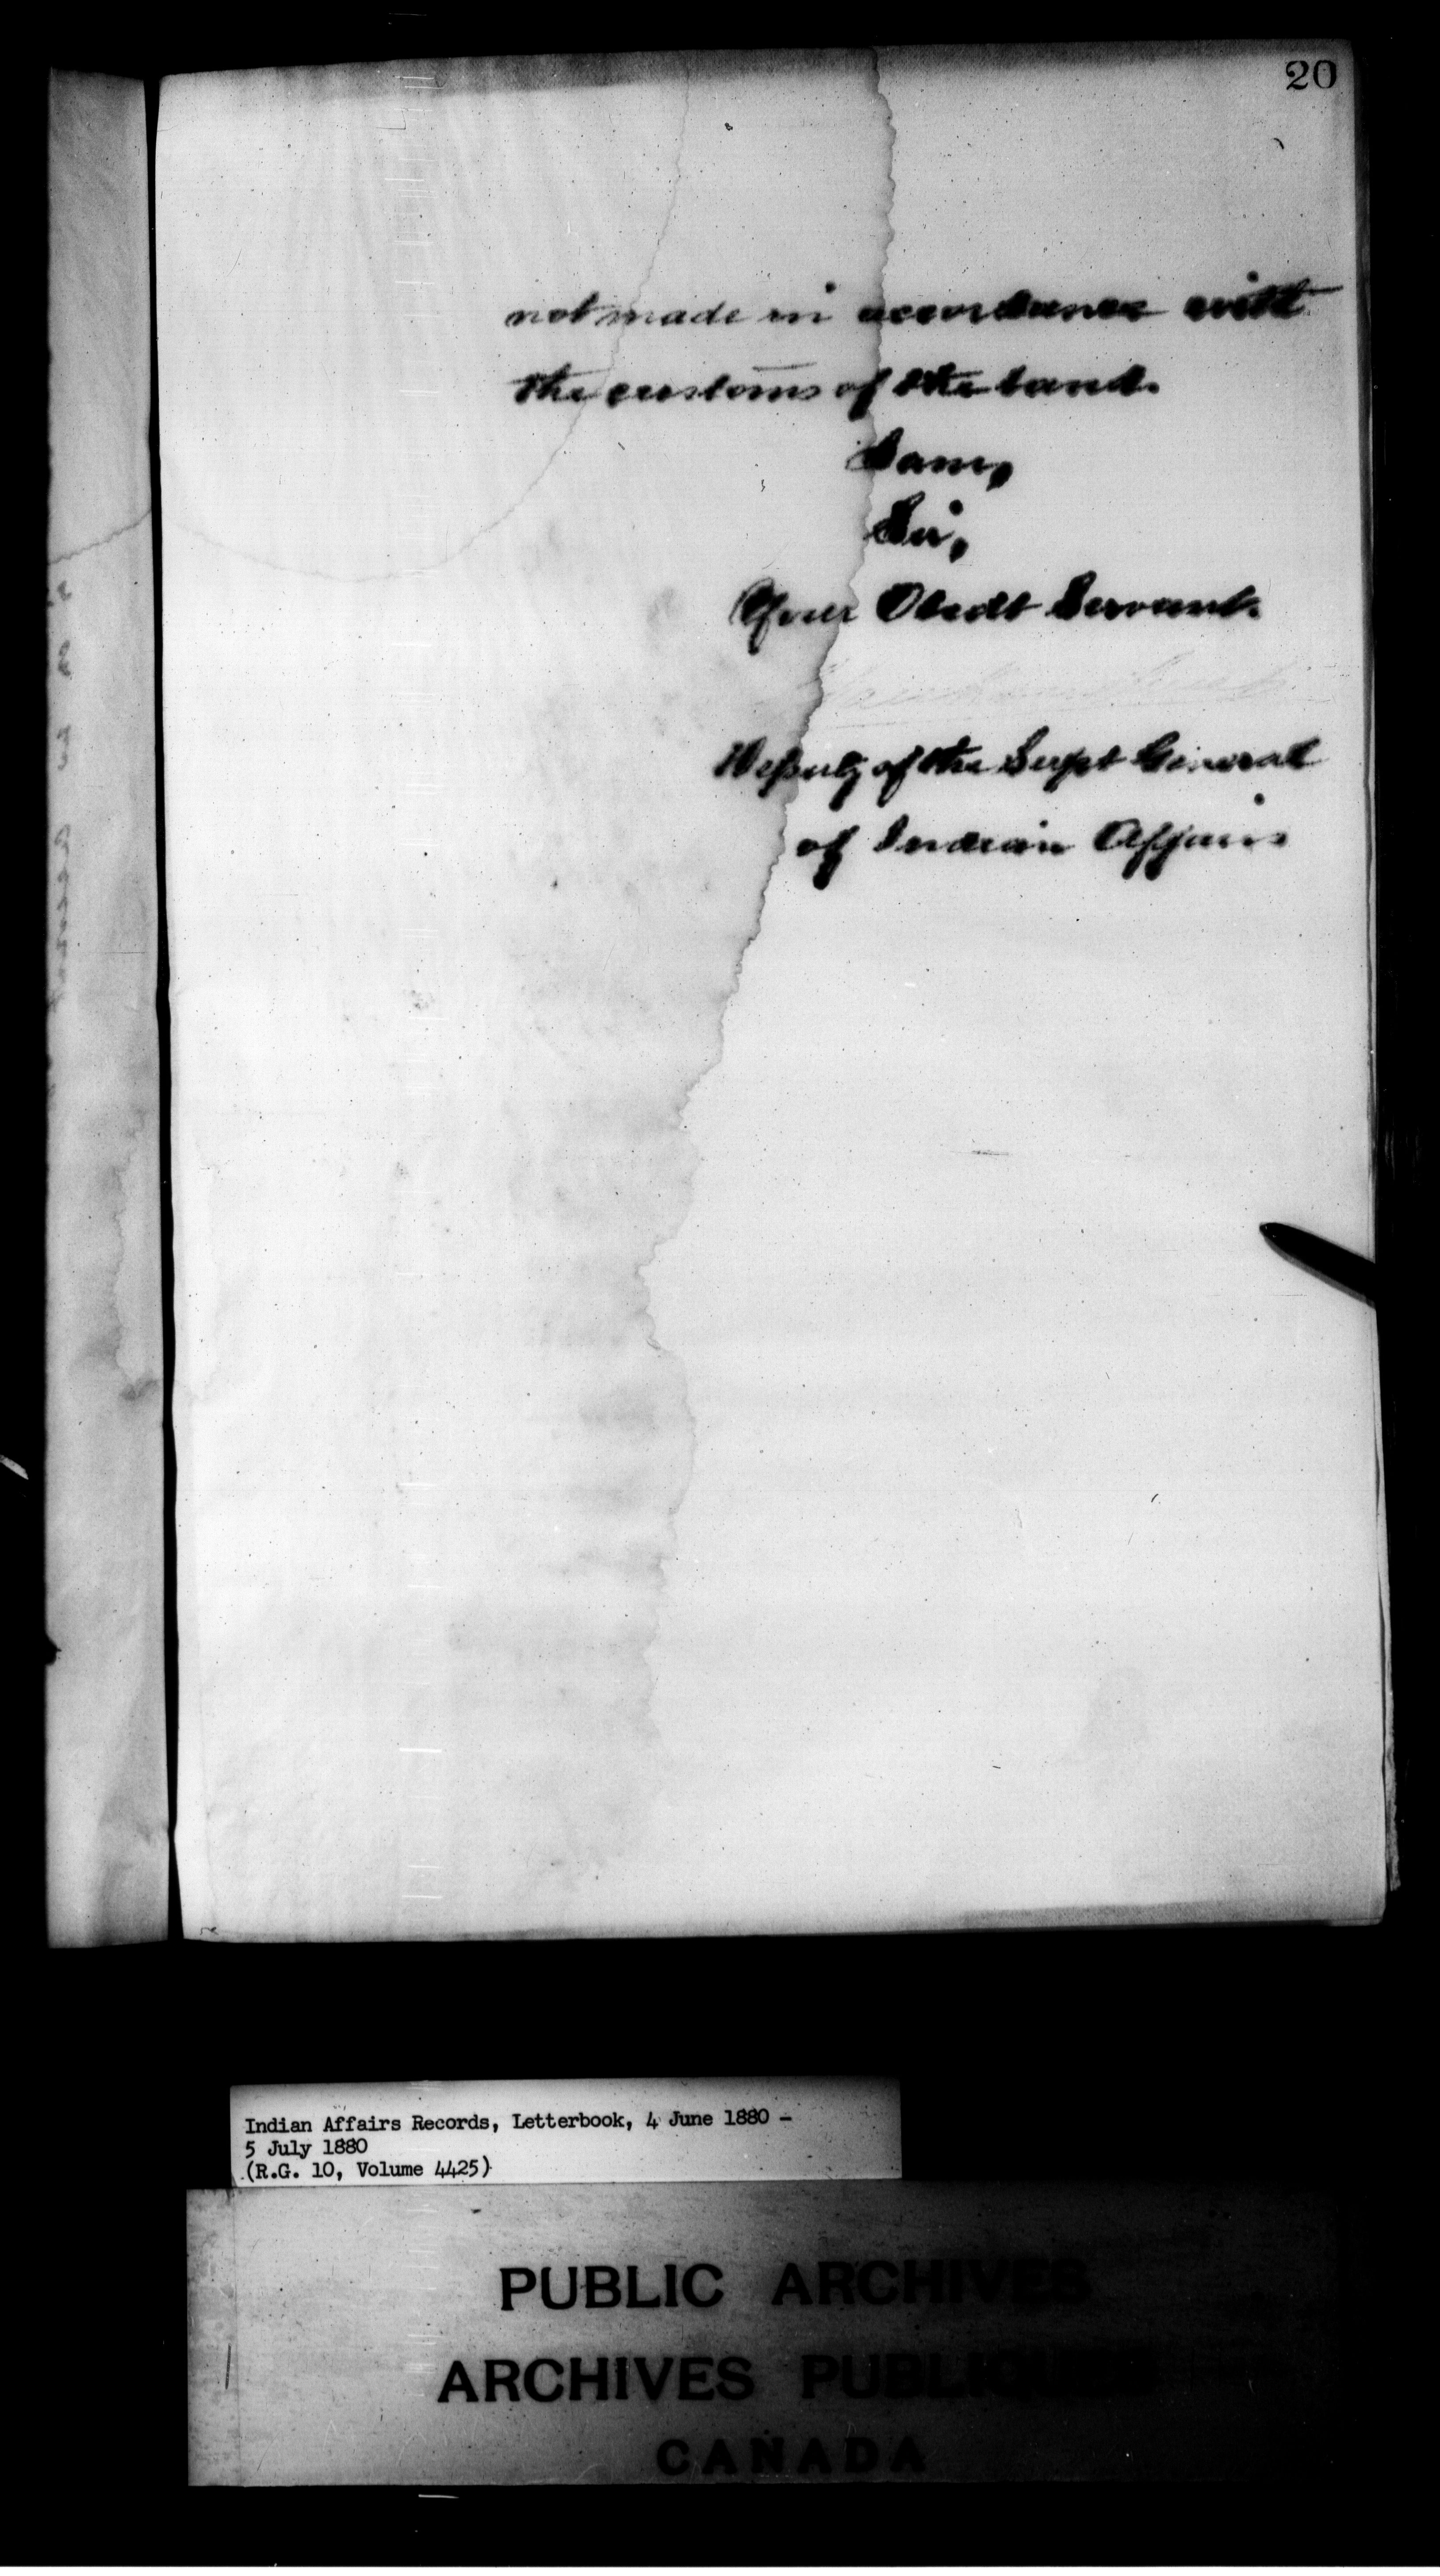 20
not made in accordance with
the customs of the band.
I am,
Sir,
Your Obedt Servant.
Deputy of the Supt General
of Indian Affairs
Indian Affairs Records, Letterbook, 4 June 1880 -
5 July 1880
(R.G. 10, Volume 4425)
PUBLIC ARCHIVES
ARCHIVES PUBLIQUES
CANADA